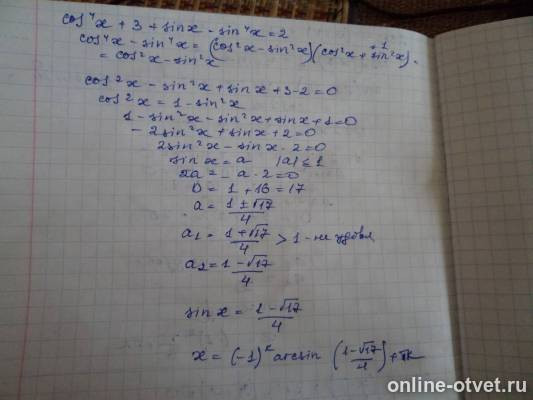 cos⁴x + 3 + sinx - sin⁴x = 2
cos⁴x - sin⁴x = (cos²x - sin²x)(cos²x + sin²x).
= cos²x - sin²x
cos²x - sin²x + sinx + 3-2 = 0
cos²x = 1 - sin²x
1 - sin²x - sin²x + sinx + 1 = 0
- 2sin²x + sinx + 2 = 0
2sin²x - sinx - 2 = 0
sinx = a |a| ≤ 1
2a = - a - 2 = 0
D = 1 + 16 = 17
a = (1 ± √17)/4
a₁ = (1 + √17)/4 > 1 - не удовл
a₂ = (1 - √17)/4
sinx = (1 - √17)/4
x = (-1)ᵏ arcsin ((1 - √17)/4) + πk
online-otvet.ru